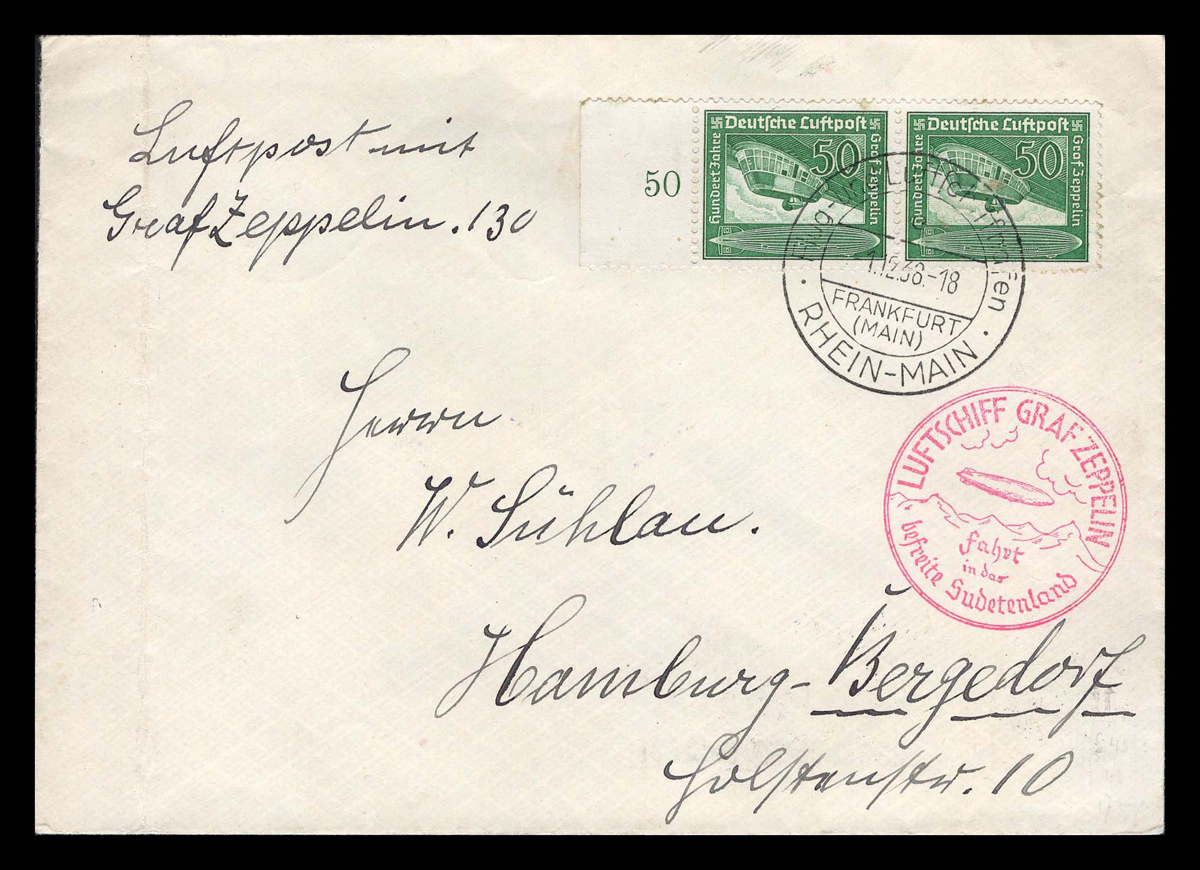 Luftpost mit
Graf Zeppelin. 130
50
Deutsche Luftpost
Hundert Jahre
50
Graf Zeppelin
Deutsche Luftpost
Hundert Jahre
50
Graf Zeppelin
1.12.38.-18
FRANKFURT
(MAIN)
RHEIN-MAIN
LUFTSCHIFF GRAF ZEPPELIN
Fahrt
in das
befreite Sudetenland
Herrn
W. Sühlau.
Hamburg-Bergedorf
Holstenstr. 10